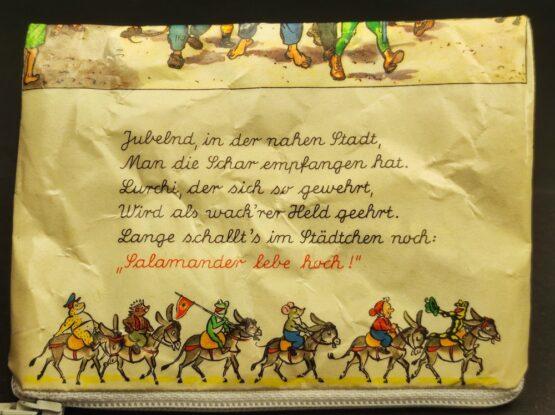 Jubelnd, in der nahen Stadt,
Man die Schar empfangen hat.
Lurchi, der sich so gewehrt,
Wird als wack'rer Held geehrt.
Lange schallt's im Städtchen noch:
„Salamander lebe hoch!"